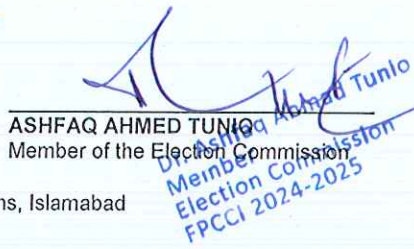 ASHFAQ AHMED TUNIO
Member of the Election Commission
ns, Islamabad
Dr. Ashfaq Ahmad Tunio
Member
Election Commission
FPCCI 2024-2025